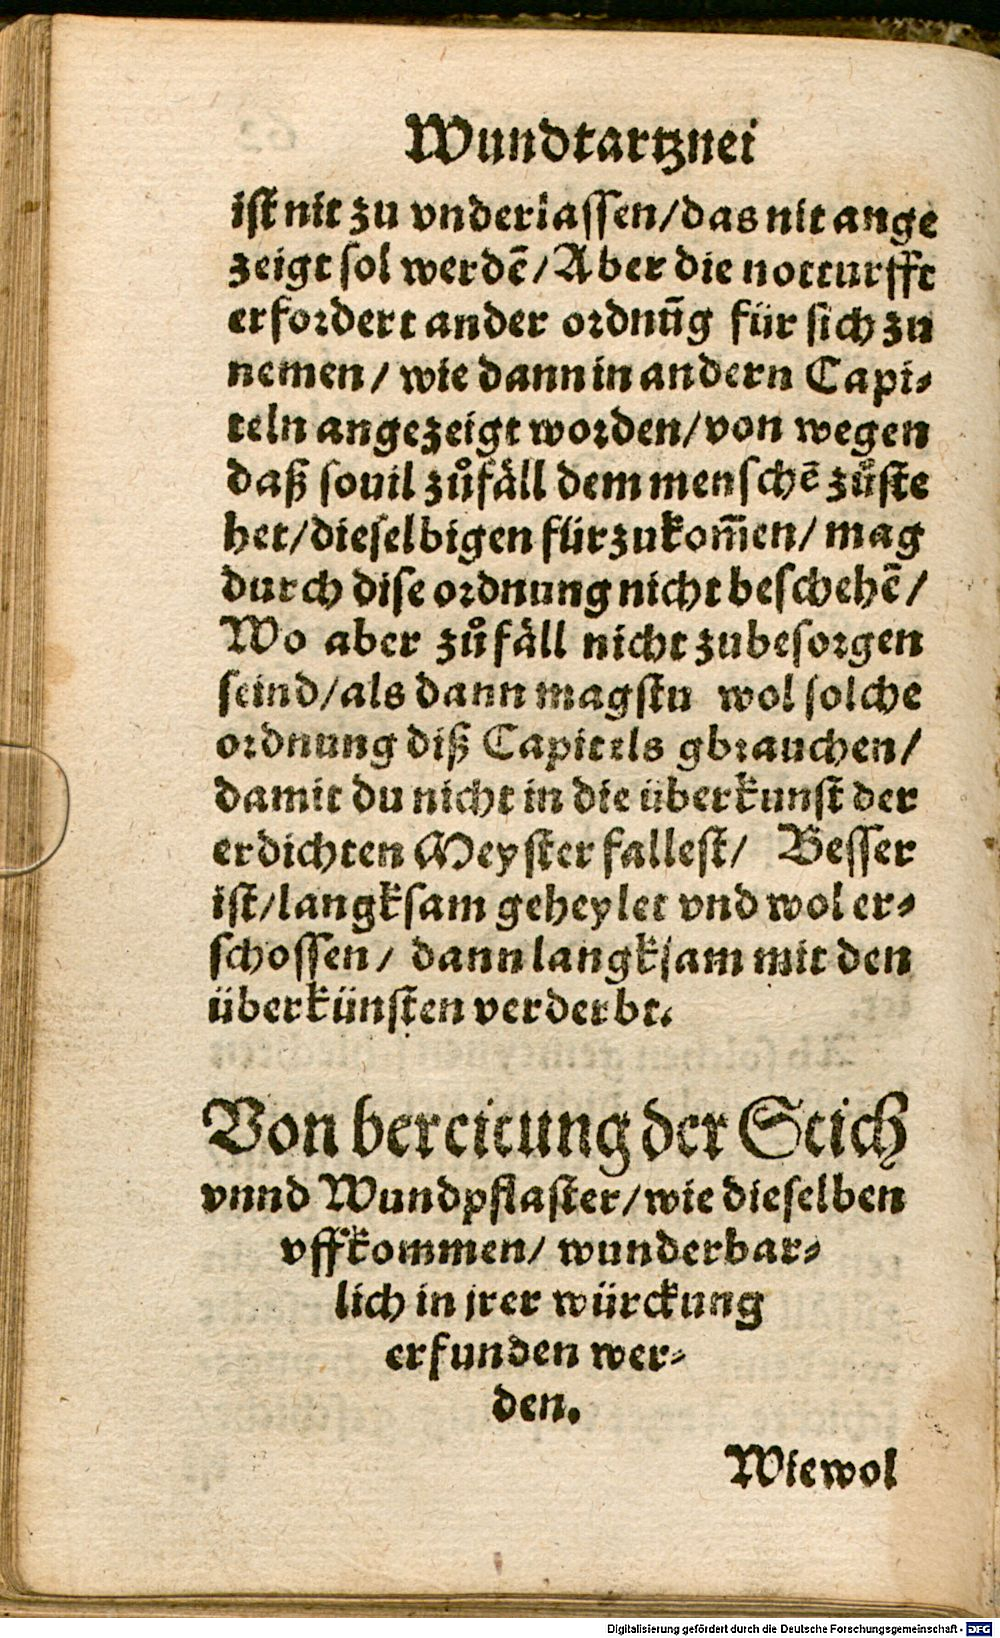 Wundtartznei
ist nit zu vnderlassen/das nit ange
zeigt sol werdē/Aber die notturfft
erfordert ander ordnūg für sich zu
nemen/ wie dann in andern Capi⸗
teln angezeigt worden/von wegen
daß souil zůfäll dem menschē zůste
het/dieselbigen fürzukom̄en/ mag
durch dise ordnung nicht beschehē/
Wo aber zůfäll nicht zubesorgen
seind/als dann magstu wol solche
ordnung diß Capitels gbrauchen/
damit du nicht in die überkunst der
erdichten Meyster fallest/ Besser
ist/langksam geheylet vnd wol er⸗
schossen/ dann langksam mit den
überkünsten verderbt.
Von bereitung der Stich
vnnd Wundpflaster/wie dieselben
vffkommen/ wunderbar⸗
lich in jrer würckung
erfunden wer⸗
den.
Wiewol
Digitalisierung gefördert durch die Deutsche Forschungsgemeinschaft - DFG